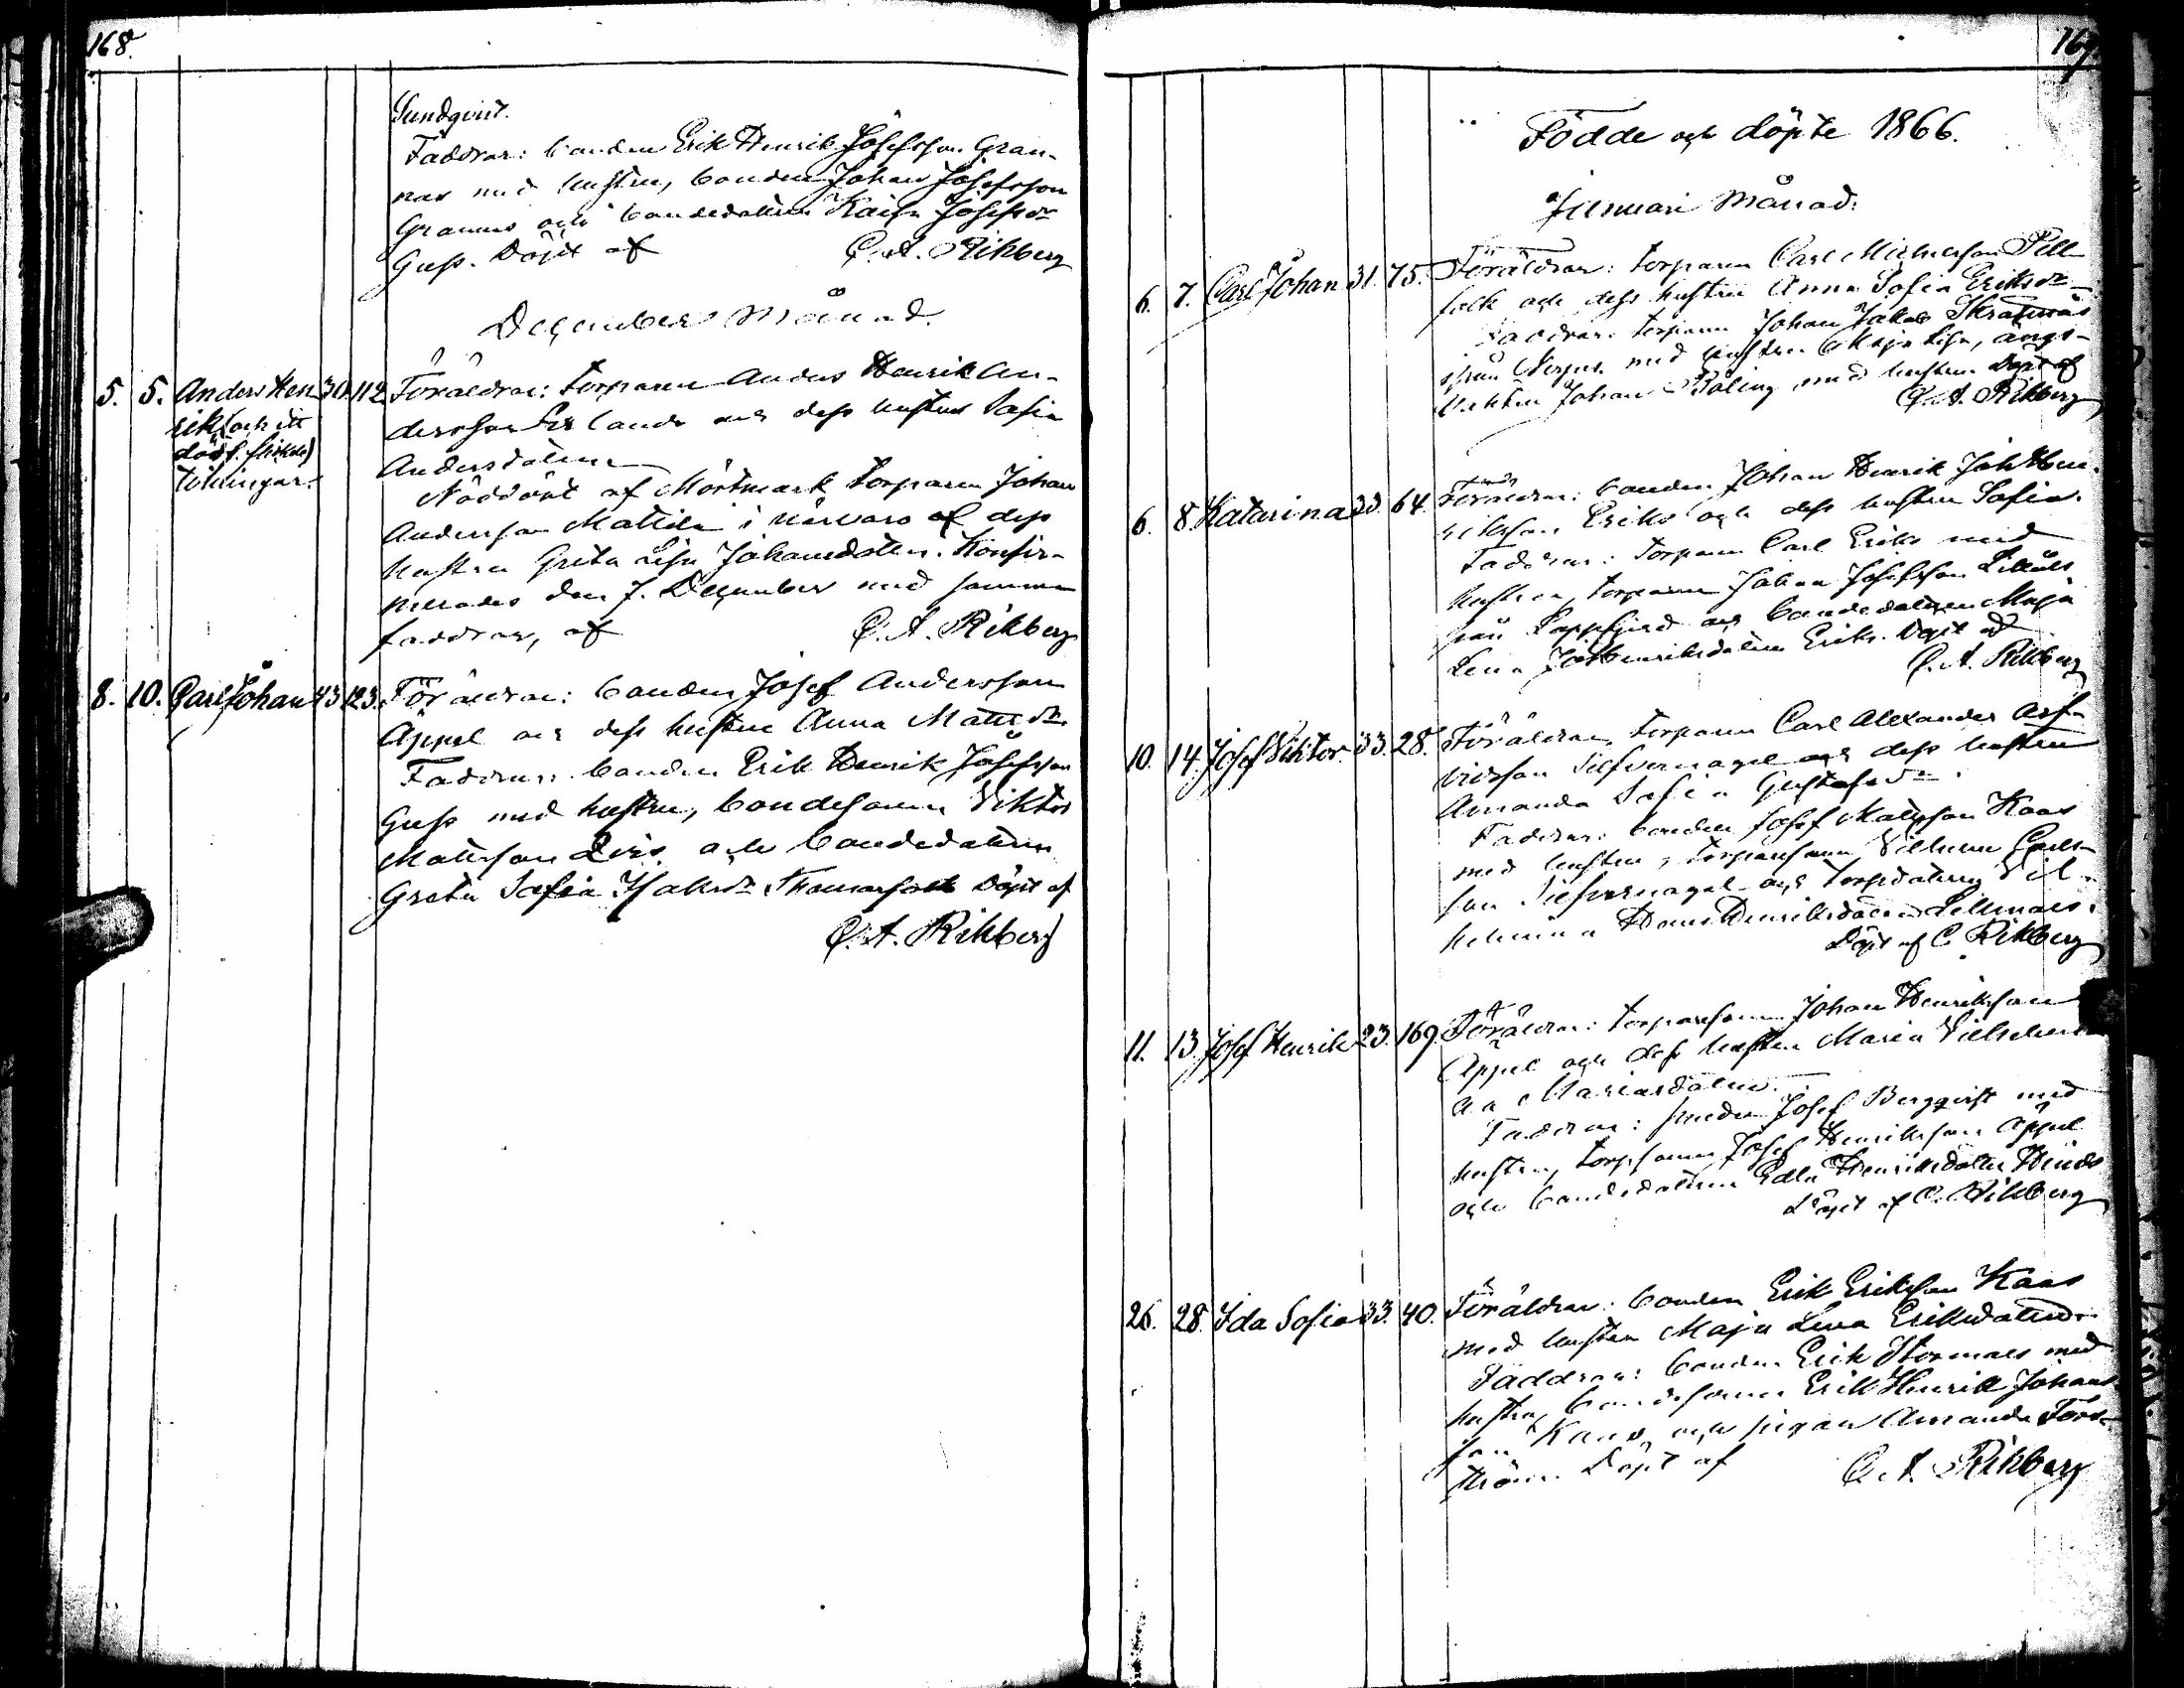 168.
Sundqvist.
Faddrar: bonden Erik Henrik Josefsson Gran-
nas med hustru, bonden Johan Josefsson
Grannas och bondedottren Kaisa Josefsdr
Guss. Döpt af C. A. Rikberg
December Månad.
5. 5. Anders Hen- 30. 112. Föräldrar: torparen Anders Henrik An-
rik (och ett
dersson Erlands och dess hustru Sofia
dödf. flickeb)
Andersdotter
tvillingar.
Nöddöpt af Mörtmark torparen Johan
Andersson Mattila i närvaro af dess
hustru Greta Lisa Johansdotter. Konfir-
merades den 7. December med samma
faddrar, af C. A. Rikberg
8. 10. Carl Johan 43 123. Föräldrar: bonden Josef Andersson
Äppel och dess hustru Anna Mattsdr.
Faddrar: bonden Erik Henrik Josefsson
Guss med hustru, bondesonen Viktor
Mattsson och bondedottren
Greta Sofia Isaksdr Thomasfolk Döpt af
C. A. Rikberg
169.
Födde och döpte 1866.
Januari Månad.
6. 7. Carl Johan 31. 75. Föräldrar: torparen Carl Michelsson Pell-
folk och dess hustru Anna Sofia Eriksdr
Faddrar: torparen Johan Jakob Skratnäs
från Nerpes med hustru Maja Lisa, ångs-
vakten Johan Böling med hustru Döpt af
C. A. Rikberg
6. 8. Katarina 23. 64. Föräldrar: bonden Johan Henrik Joh. Hen-
riksson Eriks och dess hustru Sofia.
Faddrar: torparen Carl Eriks med
hustru, torparen Johan Josefsson Lillåls
från Lappfjerd och bondedottren Maja
Lena Joh. Henriksdotter Eriks. Döpt af
C. A. Rikberg
10. 14. Josef Viktor. 33. 28. Föräldrar, torparen Carl Alexander Arf-
vidsson Silfvernagel och dess hustru
Amanda Sofia Gustafsdr.
Faddrar: bonden Josef Mattsson Kaas
med hustru, torparesonen Vilhelm Carls-
son Silfvernagel och torpdottren Vil-
helmina Hans Henriksdotter Lillmars.
Döpt af C. Rikberg
11. 13. Josef Henrik 23. 169. Föräldrar: torparesonen Johan Henriksson
Äppel och dess hustru Maria Vilhelmi-
na Mariasdotter.
Faddrar: smeden Josef Bergqvist med
hustru, torpsonen Josef Henriksson Äppel
och bondedottren Edla Henriksdotter Hinds
Döpt af C. Rikberg
26. 28. Ida Sofia 33. 40. Föräldrar: bonden Erik Eriksson Kaas
med hustru Maja Lena Eriksdotter.
Faddrar: bonden Erik Stormars med
hustru, bondesonen Erik Henrik Johans-
son Kaas och pigan Amanda Fors-
ström. Döpt af C. A. Rikberg